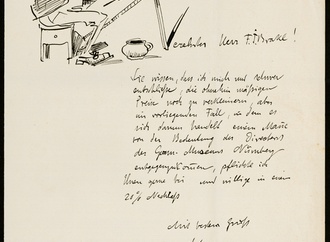 Verehrter Herr F. J. Brakl!
Sie wissen, dass ich mich nur schwer
entschließe, die ohnehin mäßigen
Preise noch zu verkleinern, aber
im vorliegenden Fall, wo dem es
sich darum handelt einem Manne
von der Bedeutung des Direktors
des Germ. Museums Nürnberg
entgegenzukommen, pflichte ich
Ihnen gerne bei und willige in einen
20% Nachlass
Mit bestem Gruß